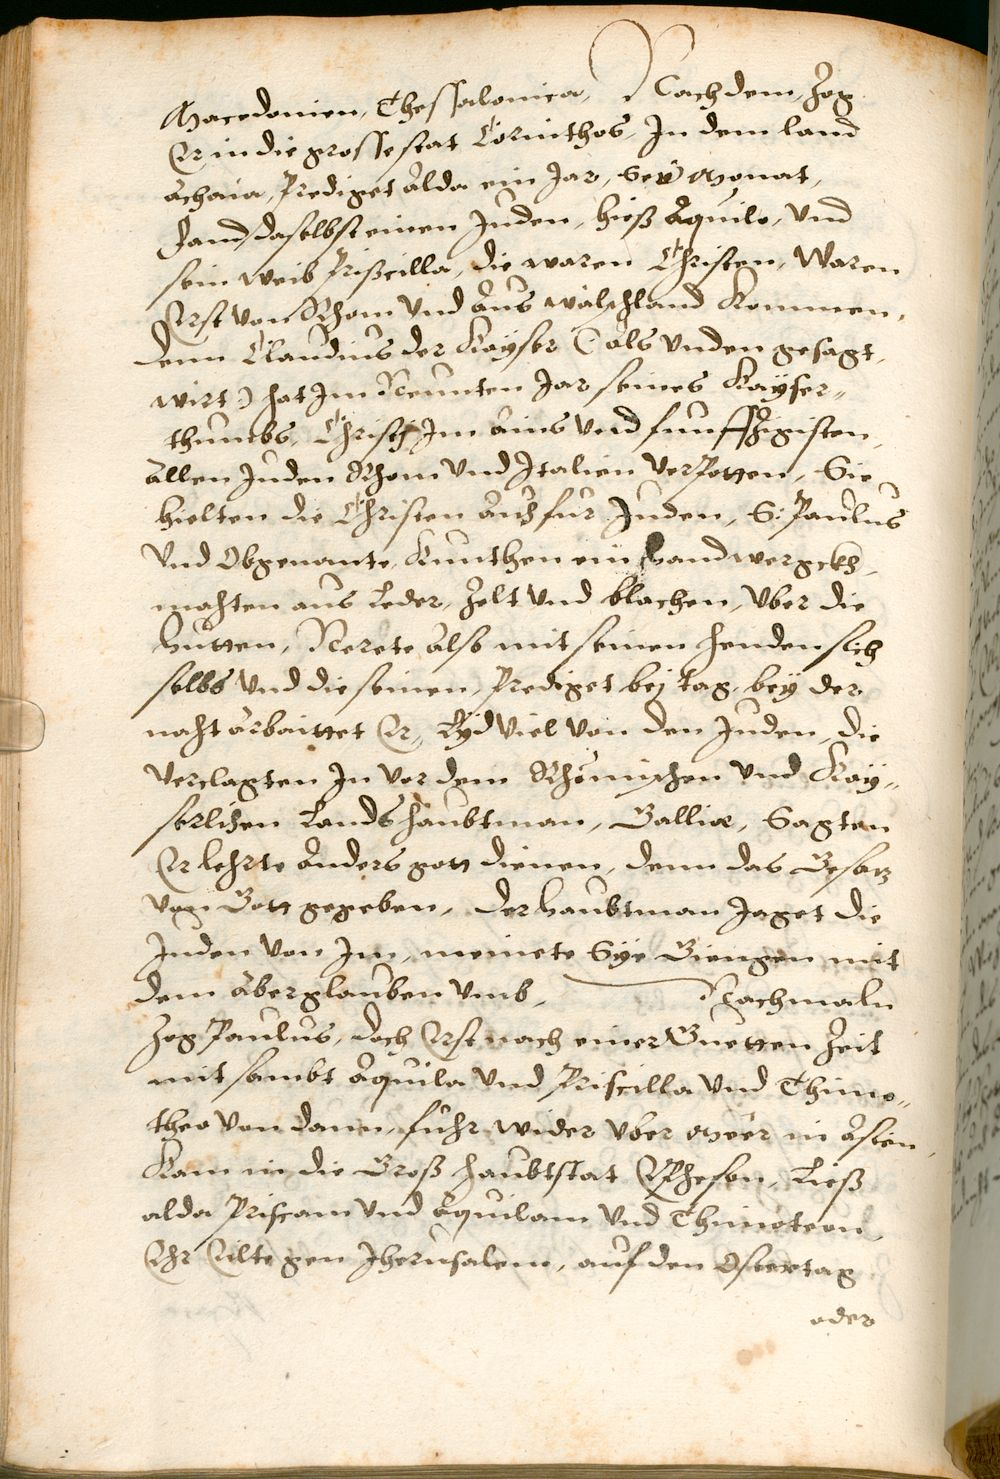 Macedonien, Thessalonica, Nachdem, Zog
Er in die grosse stat Corinthos, In dem land
Achaia, Prediget Alda ein Jar, Sex Monat,
Fand daselbst einen Juden, hieß Aquila, Vnd
sein weib Prißcilla, die waren Christen, Waren
Erst von Rhom Vnd Aus wälschland Kommen,
denn Claudius der Kayser (als Vnden gesagt,
wirt) hat Im Neunten Jar seines Kayser„
thumbs, Christj Im Ains Vnd funffzigisten,
Allen Juden Rhom Vnd Italien Verpotten, Sie
hielten die Christen Auch fur Juden, S: Paulus
Vnd Obgenante, Kunthen ein handwergckh,
machten aus Leder, Zelt Vnd blachen, Vber die
hutten, Nerete Also mit seinen henden sich
selbs Vnd die seinen, Prediget bej tag, bey der
nacht Arbaittet Er, Lyd Viel Von den Juden, die
Verclagten In Vor dem Rhömischen Vnd Kay„
serlichen Landshaubtman, Gallio, Sagten
Er lehrte Anders gott dienen, denn das Gesatz
Von Gott gegeben, der haubtman Jaget die
Juden Von Im, meinete Sye Giengen mit
dem Aberglauben Vmb, Nachmaln
Zog Paulus, doch Erst nach einer Guetten Zeit
mit sambt Aquila Vnd Priscilla Vnd Thimo„
theo Von dann, fuhr wider Vber Meer in Asien,
Kam in die Groß haubtstat Epheson, Ließ
alda Priscam Vnd Aquilam Vnd Thimoteon,
Ehr Eilte gen Jherusalem, auf den Ostertag
oder